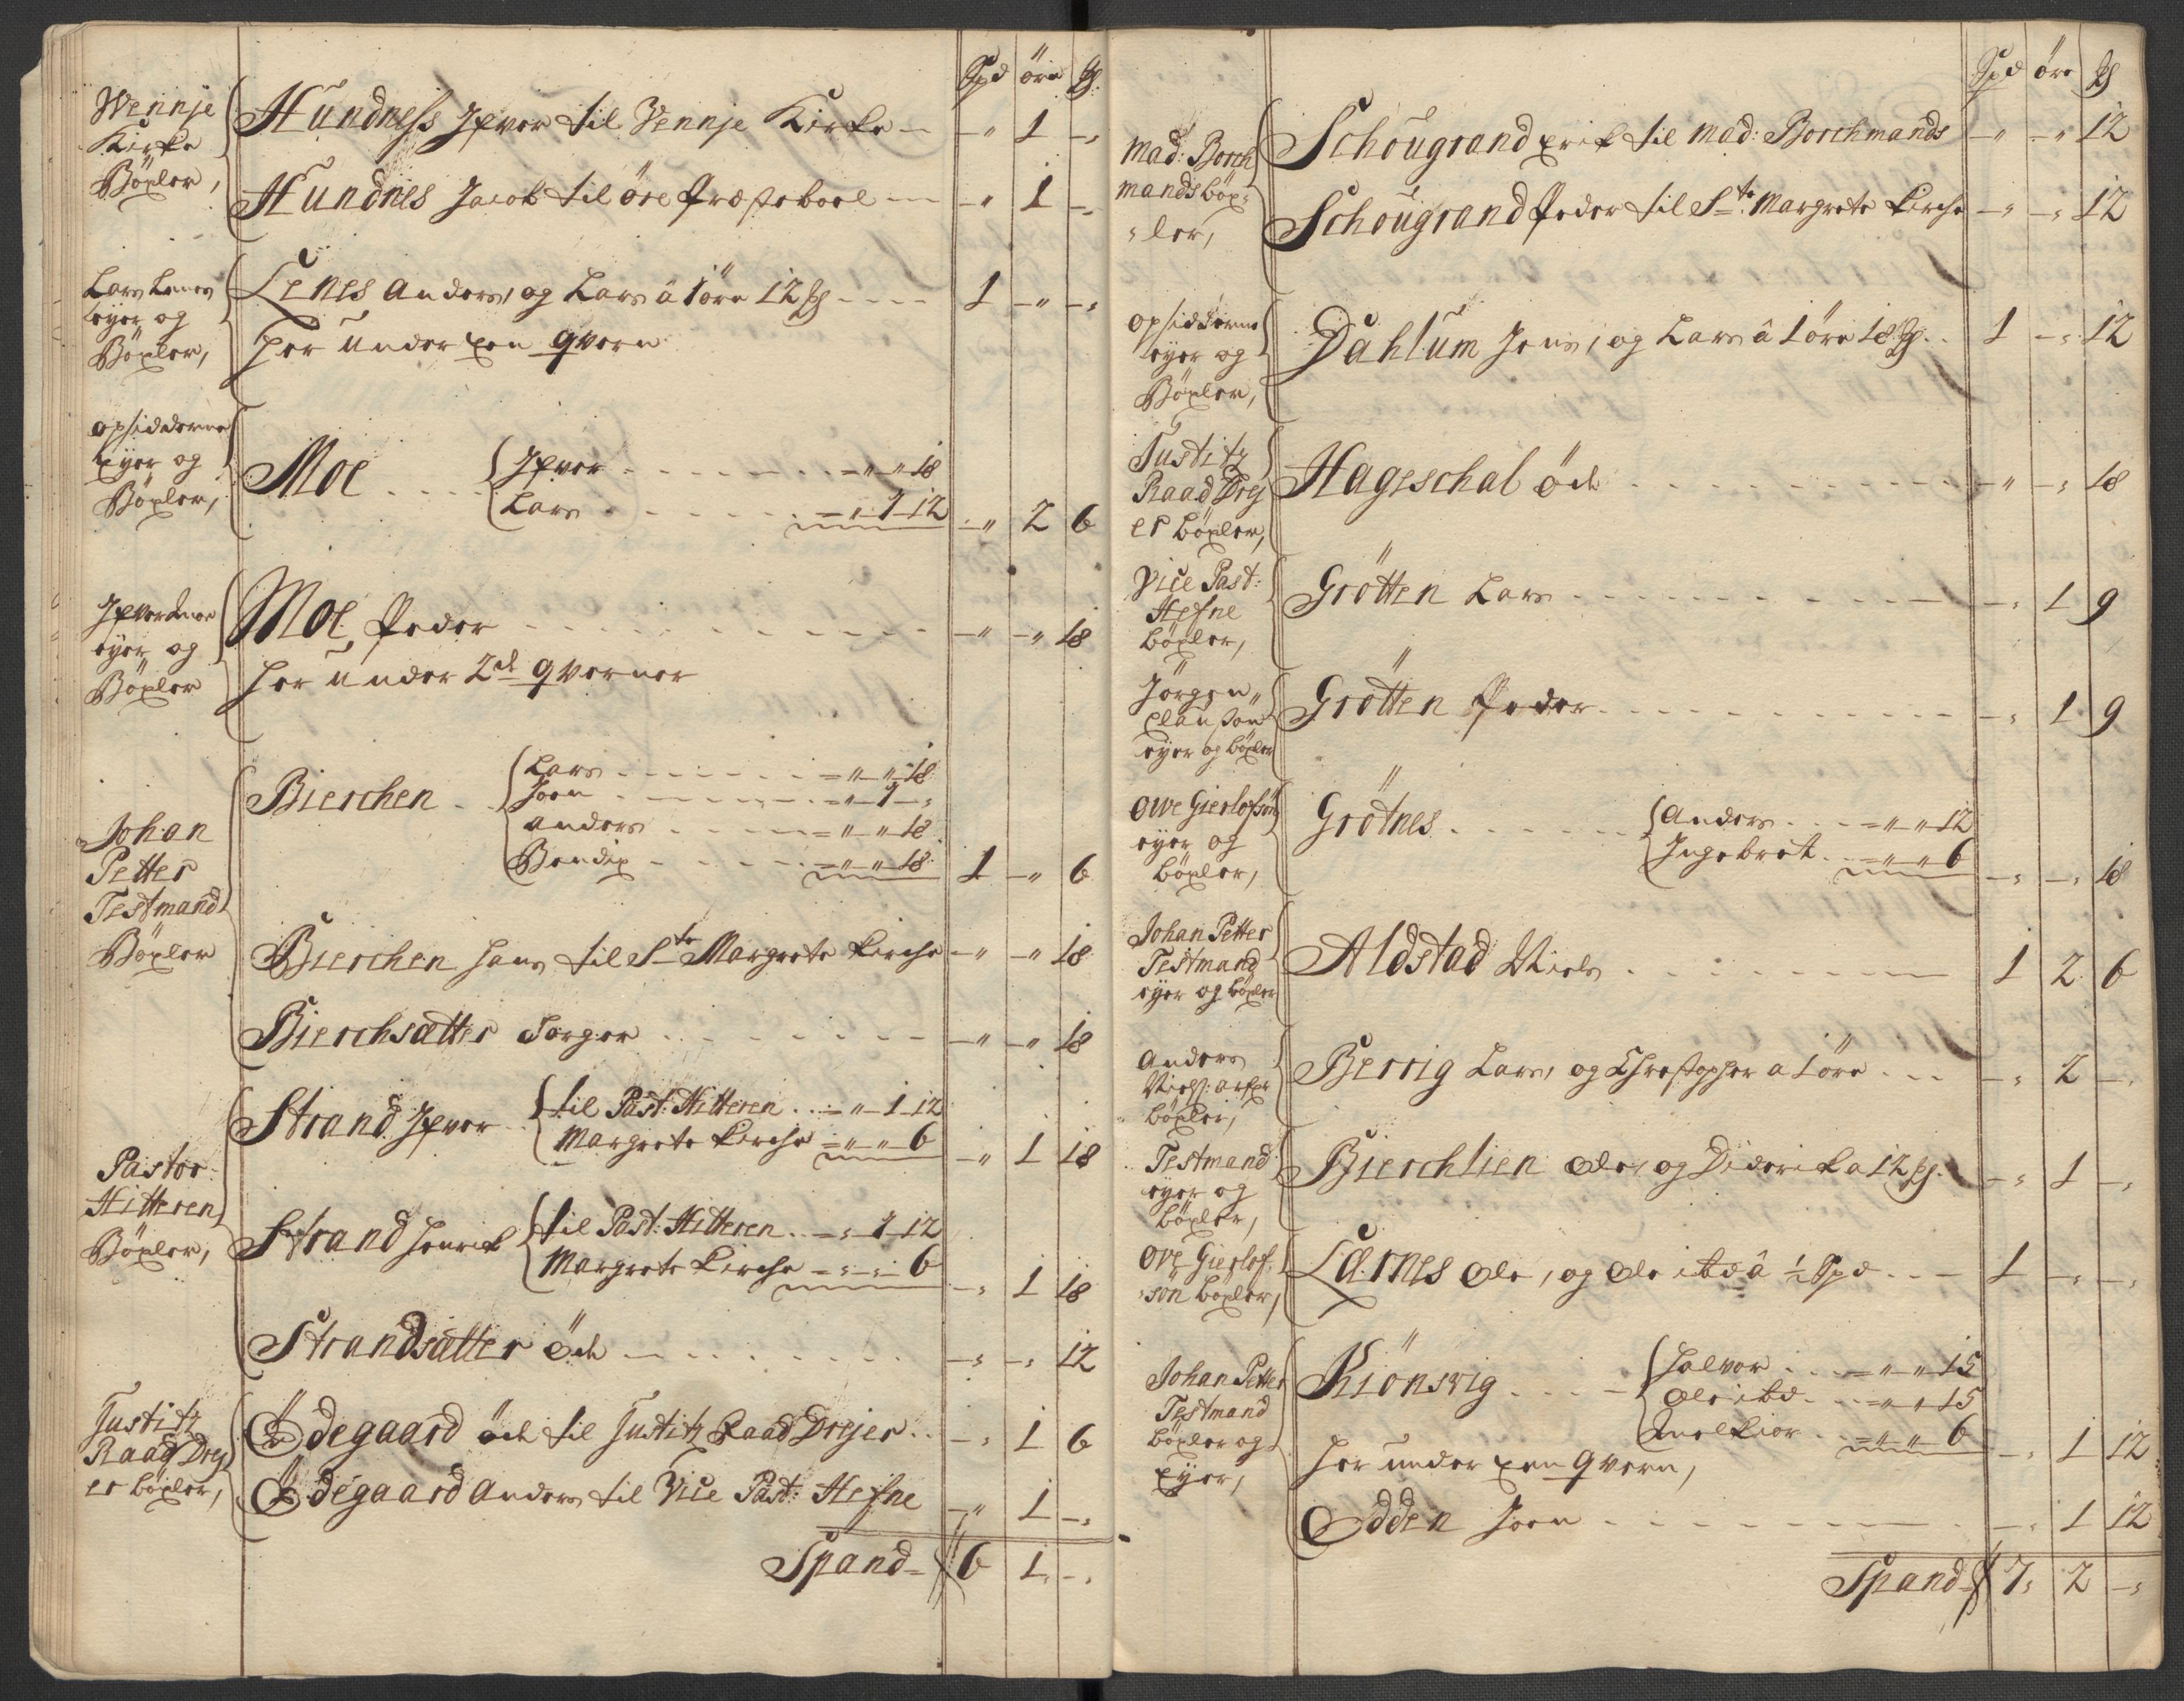 Spd öre
Wennje
Kirke
Böxler,
Hundness Ifver til Vennje Kirke — " 1 —
Hundnes Jacob til öre Præsteboel — " 1 —
Lars Lenes
eyer og
Böxler,
Lenes Anders, og Lars â 1 öre 12 1 — " —
her under een qvern
opsidderne
eyer og
Böxler,
Moe Ifver " " 18
Lars " 1 12 — " 2 6
eyer og
Böxler
Moe Peder — " — " 18
her under 2de qverner
Johan
Petter
Testmand
Böxler
Bierchen Lars " " 18
Joen " 1 —
Anders " " 18
Bendix " " 18 1 — " 6
Bierchen Hans til Ste Margrete Kirche — " — " 18
Bierchsætter Torger — " — " 18
Pastor
Hitteren
Böxler,
Strand Ifver til Past: Hitteren " 1 12
Margrete Kirche " " 6 — " 1 18
Strand Henrich til Past: Hitteren 1 12
Margrete Kirche 6 — 1 18
Strandsætter öde — — 12
Justitz
Raad Drej
er böxler,
Ödegaard öde til Justitz Raad Drejer — 1 6
Ödegaard Anders til Vice Past: Hefne — " 1 —
Spand 6 1 —
Spd öre
Mad: Borch
mands böx=
=ler,
Schougrand Erik til Mad: Borchmands — " — " 12
Schougrand Peder til Ste Margrete Kirche — " — 12
opsidderne
eyer og
Böxler,
Dahlum Jens, og Lars â 1 öre 18 1 — 12
Justitz
Raad Drej
er böxler,
Hageschal öde — " — 18
Vice Past:
Hefne
böxler,
Grötten Lars — 1 9
Jörgen
eyer og böxler
Grötten Peder — 1 9
Owe Gierlofsön
eyer og
böxler,
Grötnes Anders " " 12
Ingebret " " 6 — — 18
Johan Petter
Testmand
eyer og böxler
Aldstad Niels 1 2 6
Anders
böxler,
Berrig Lars, og Christopher a 1 öre — 2 —
Testmand
eyer og
böxler,
Bierchlien Ole, og Diderik a 12 — 1 —
Ove Gierlof=
=sön böxler,
Lærnes Ole, og Ole ibd â ½ Spd 1 — —
Johan Petter
Testmand
böxler og
Eyer,
Kiönsvig Halvor " " 15
Ole ibd " " 15
Melkior " " 6 — 1 12
her under een qvern,
Ödden Joen — 1 12
Spand 7 2 —